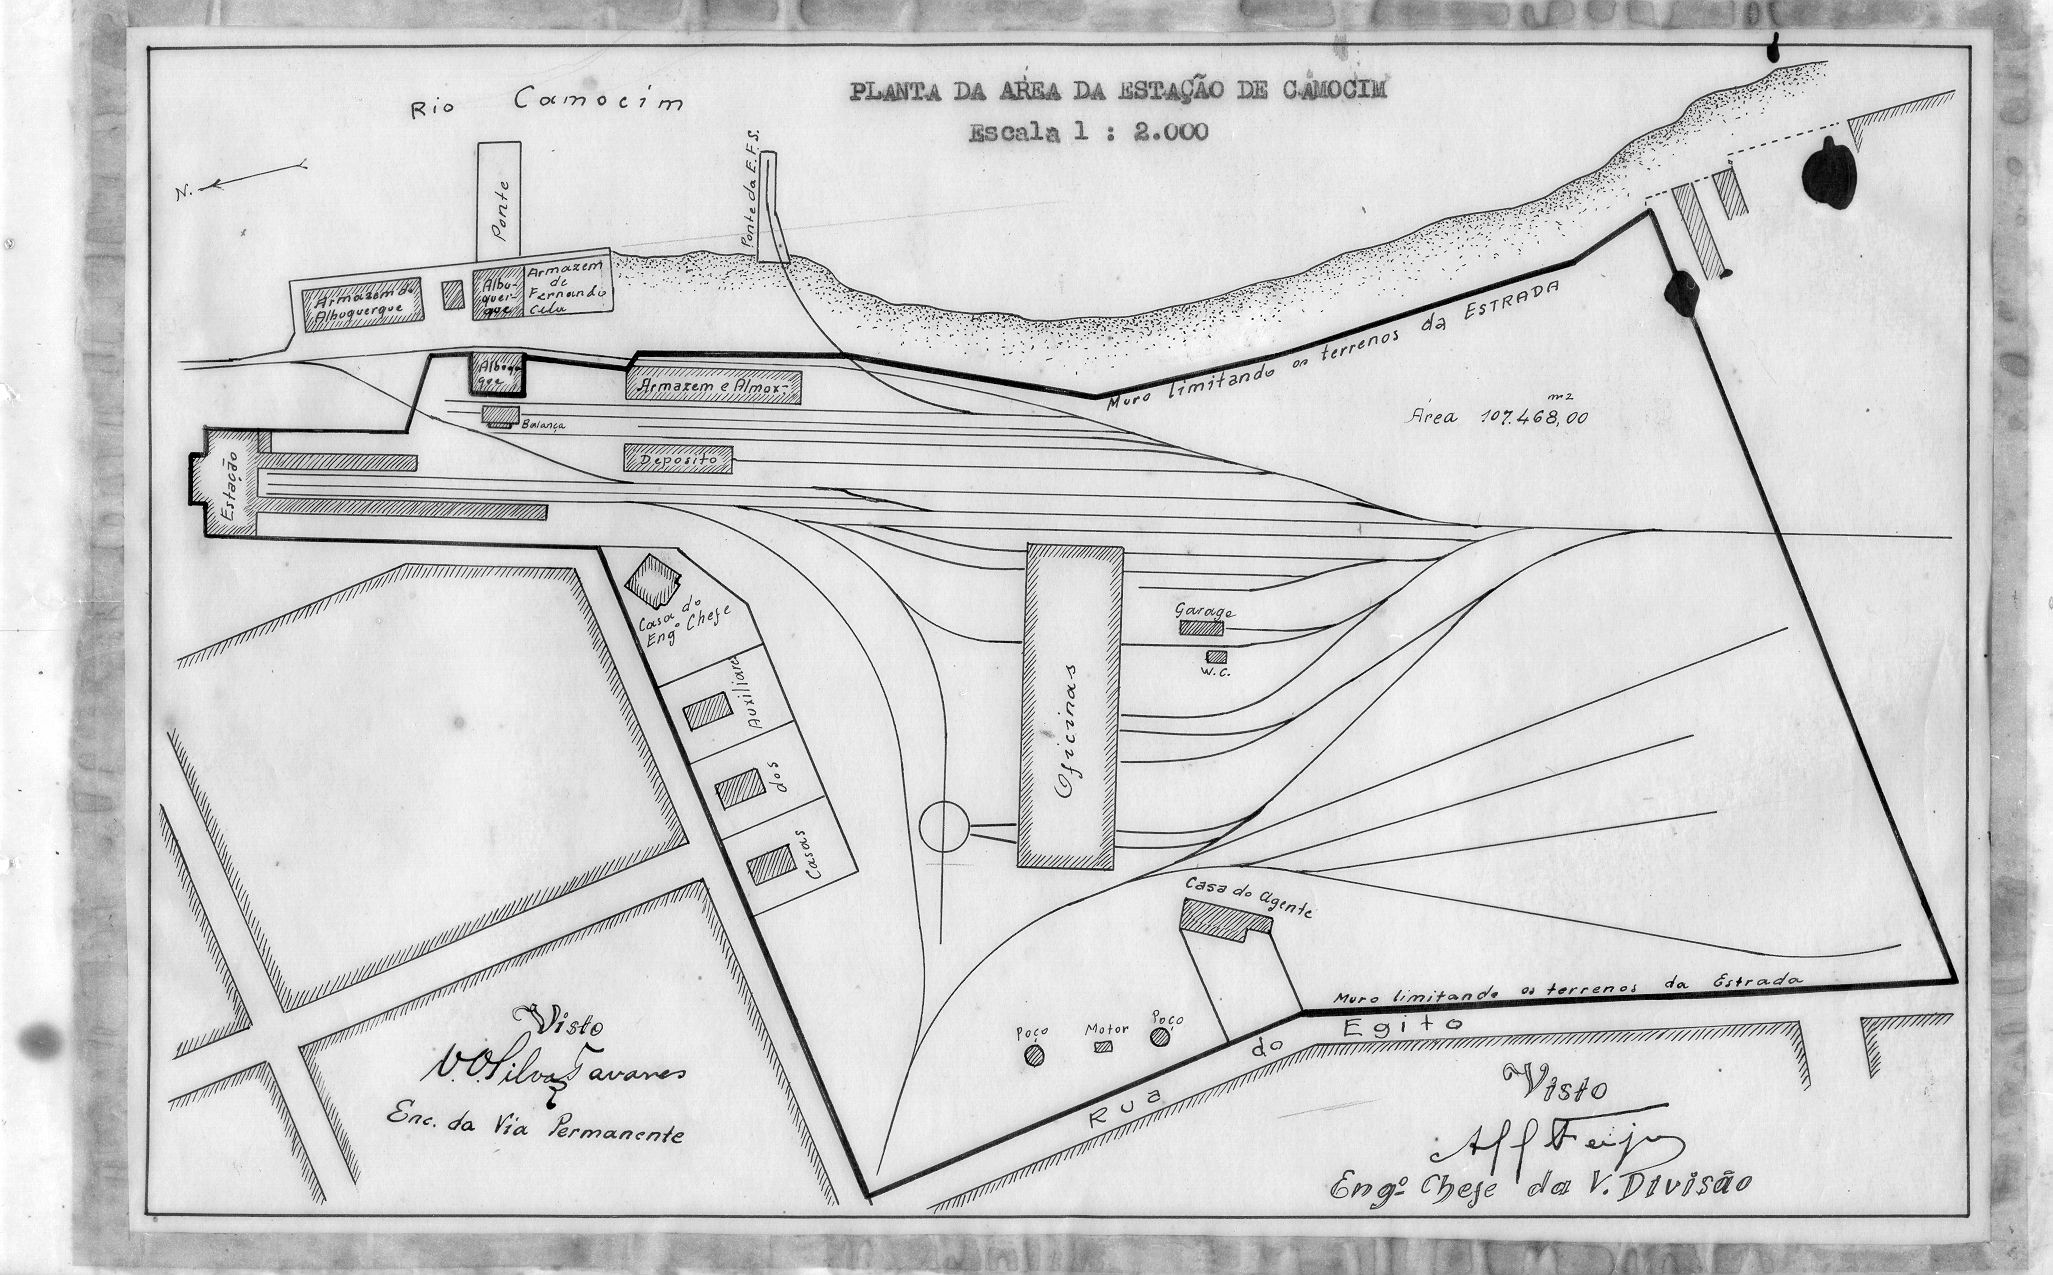 PLANTA DA AREA DA ESTAÇÃO DE CAMOCIM
Escala 1 : 2.000
Rio Camocim
N.
Ponte
Ponte da E.F.S.
Armazem de
Albuquerque
Albu-
quer-
que
Armazem
de
Fernando
Cela
Albuq
que
Armazem e Almox-
Balança
Deposito
Estação
Muro limitando os terrenos da ESTRADA
Área 107.468,00 m2
Casa do
Engº Chefe
Casas dos Auxiliares
Oficinas
Garage
W.C.
Casa do Agente
Poço
Motor
Poço
Muro limitando os terrenos da Estrada
Rua do Egito
Visto
V.O. Silva Tavares
Enc. da Via Permanente
Visto
Engº Chefe da V. Divisão